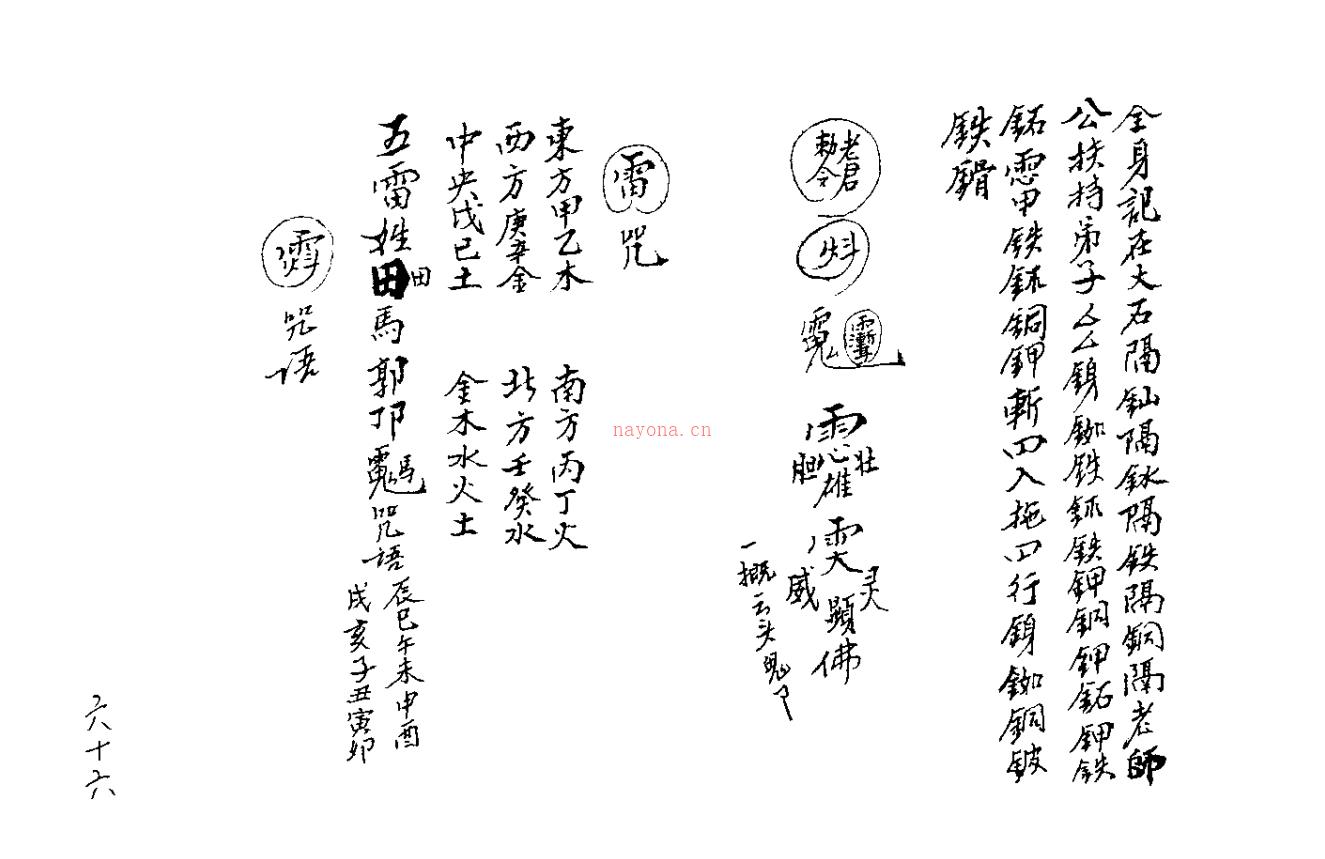 全身記在大石隔釛隔鈢隔鉄隔銅隔老師
公扶持弟子厶厶鎳鉫鉄鈈鉄鉀銅鉀鉐鉀鉄
鉐甲鉄鈈銅鉀斬四入拖四行鎳鉫銅鈹
鉄
老君
勅令
壮
胆雄
灵
威顕佛
一概云头鬼
雷
咒
東方甲乙木 南方丙丁火
西方庚辛金 北方壬癸水
中央戊己土 金木水火土
五雷姓田田馬郭邓咒语
辰巳午未申酉
戌亥子丑寅卯
咒语
六十六
nayona.cn